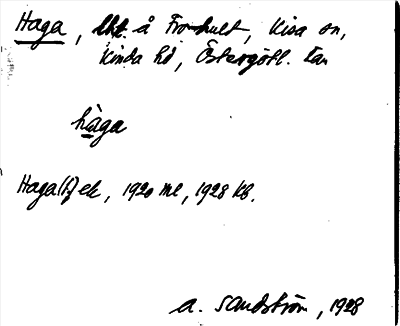 Haga, lht å Fromhult, Kisa sn,
Kinda hd, Östergötl. län
håga
Haga(h) ek, 1920 ml, 1928 kb.
A. Sandström, 1928